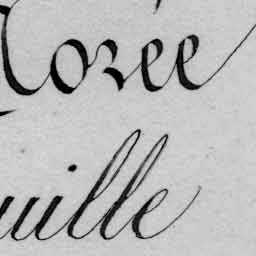 orée
uille